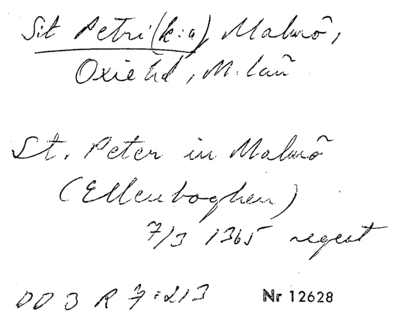 S:t Petri (k:a), Malmö,
Oxie hd, M-län
St. Peter in Malmö
(Ellenboghen)
7/3 1365 regest
DD 3 R 7:213 Nr 12628